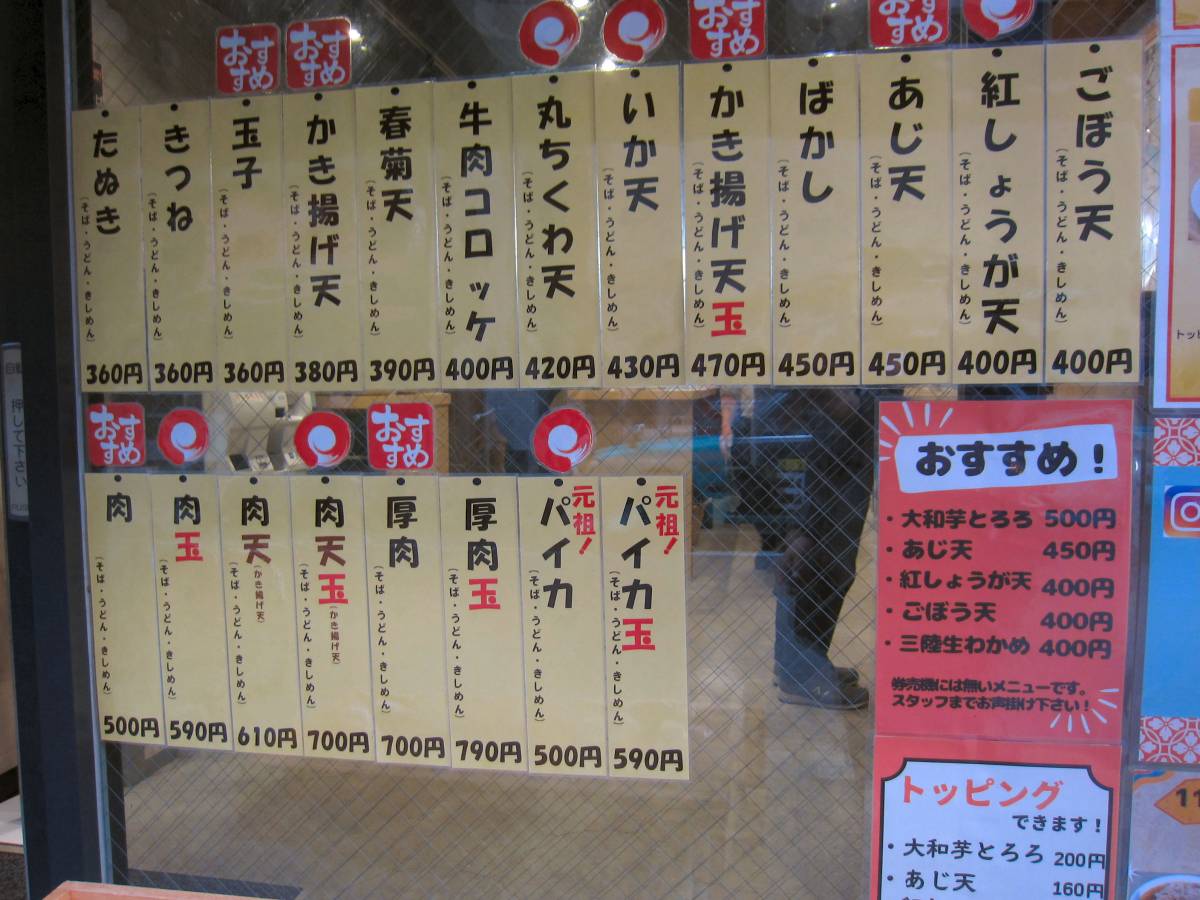 おすすめ
おすすめ
おすすめ
おすすめ
たぬき
(そば・うどん・きしめん)
360円
きつね
(そば・うどん・きしめん)
360円
玉子
(そば・うどん・きしめん)
360円
かき揚げ天
(そば・うどん・きしめん)
380円
春菊天
(そば・うどん・きしめん)
390円
牛肉コロッケ
(そば・うどん・きしめん)
400円
丸ちくわ天
(そば・うどん・きしめん)
420円
いか天
(そば・うどん・きしめん)
430円
かき揚げ天玉
(そば・うどん・きしめん)
470円
ばかし
(そば・うどん・きしめん)
450円
あじ天
(そば・うどん・きしめん)
450円
紅しょうが天
(そば・うどん・きしめん)
400円
ごぼう天
(そば・うどん・きしめん)
400円
おすすめ
おすすめ
肉
(そば・うどん・きしめん)
500円
肉玉
(そば・うどん・きしめん)
590円
肉天(かき揚げ天)
(そば・うどん・きしめん)
610円
肉天玉(かき揚げ天)
(そば・うどん・きしめん)
700円
厚肉
(そば・うどん・きしめん)
700円
厚肉玉
(そば・うどん・きしめん)
790円
元祖!
パイカ
(そば・うどん・きしめん)
500円
元祖!
パイカ玉
(そば・うどん・きしめん)
590円
おすすめ!
・大和芋とろろ 500円
・あじ天 450円
・紅しょうが天 400円
・ごぼう天 400円
・三陸生わかめ 400円
券売機には無いメニューです。
スタッフまでお声掛け下さい!
トッピング
できます!
・大和芋とろろ 200円
・あじ天 160円
押して下さい
トッピ
11